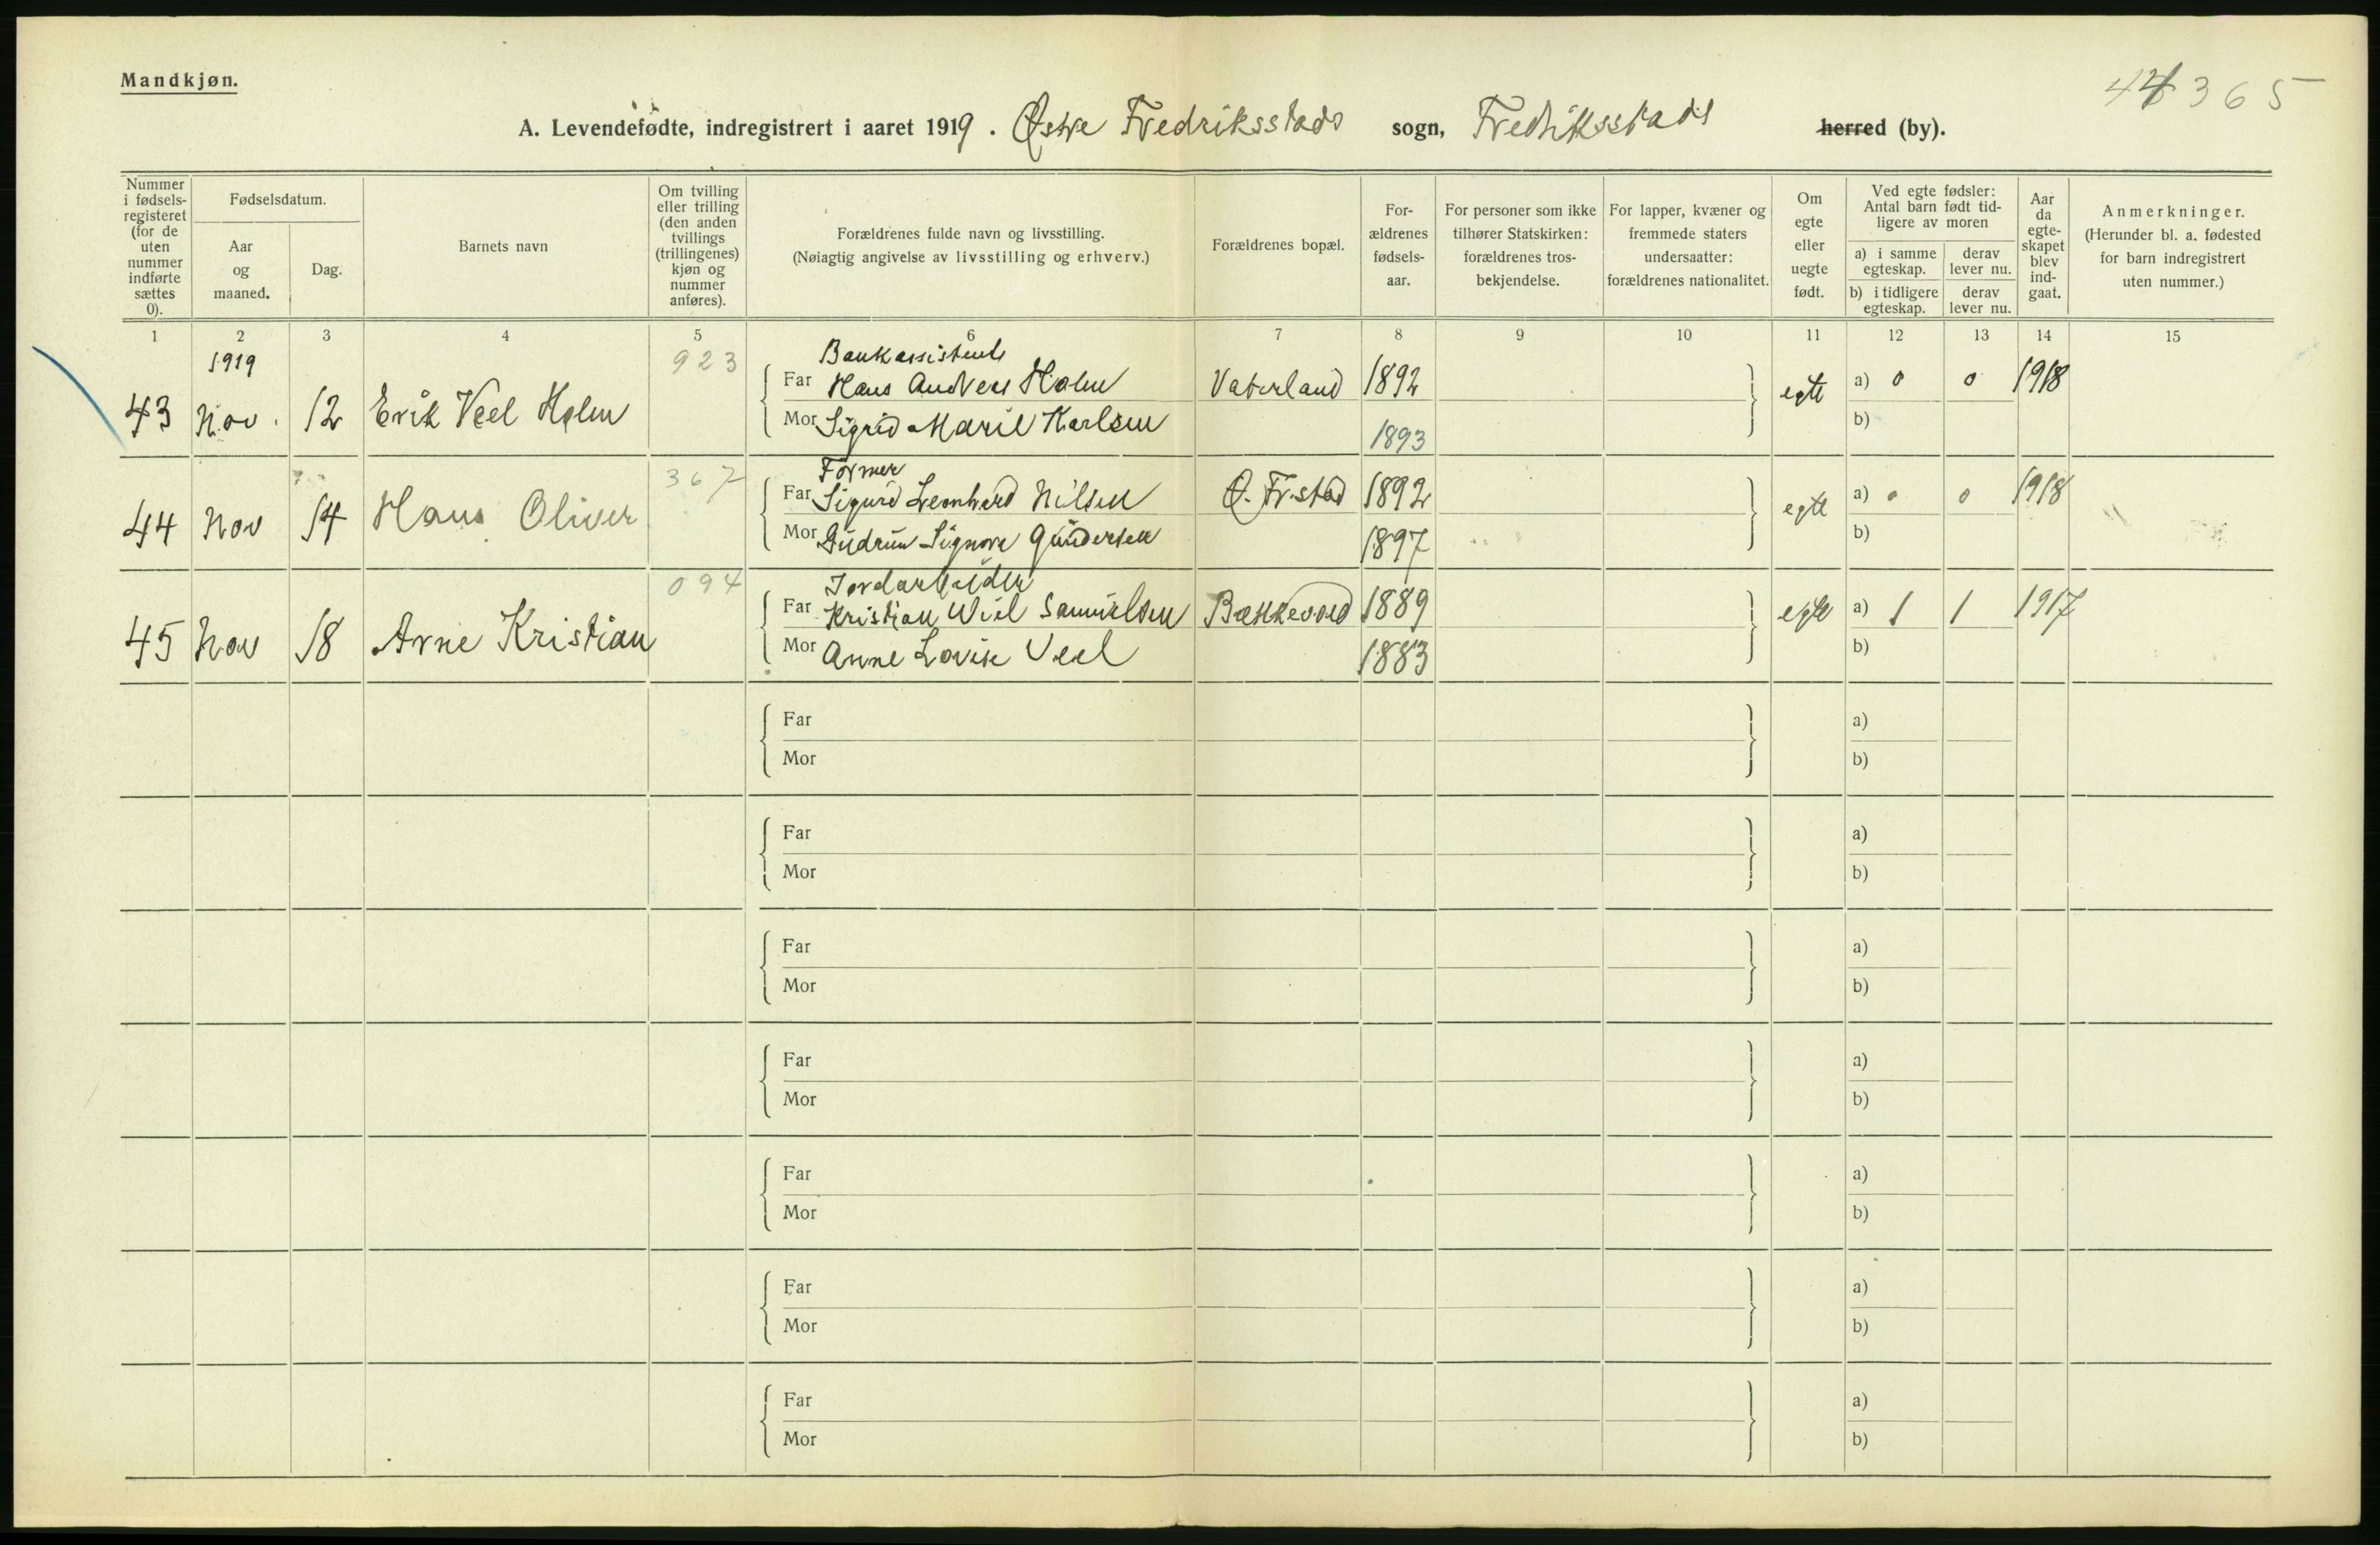 Mandkjøn.
44 365
A. Levendefødte, indregistrert i aaret 1919. Østre Fredriksstads sogn, Fredriksstads herred (by).
Nummer i fødselsregisteret (for de uten nummer indførte sættes 0).
Fødselsdatum.
Aar og maaned.
Dag.
Barnets navn
Om tvilling eller trilling (den anden tvillings (trillingenes) kjøn og nummer anføres).
Forældrenes fulde navn og livsstilling.
(Nøiagtig angivelse av livsstilling og erhverv.)
Forældrenes bopæl.
Forældrenes fødselsaar.
For personer som ikke tilhører Statskirken: forældrenes trosbekjendelse.
For lapper, kvæner og fremmede staters undersaatter: forældrenes nationalitet.
Om egte eller uegte født.
Ved egte fødsler: Antal barn født tidligere av moren
a) i samme egteskap.
derav lever nu.
b) i tidligere egteskap.
derav lever nu.
Aar da egteskapet blev indgaat.
Anmerkninger.
(Herunder bl. a. fødested for barn indregistrert uten nummer.)
1 2 3 4 5 6 7 8 9 10 11 12 13 14 15
1919 923 Bankassistent
Far Hans Andreas Holm Vaterland 1892 a) 0 0 1918
43 Nov. 12 Erik Veel Holm egte
Mor Sigrid Marie Karlsen 1893 b)
367 Former
Far Sigurd Leonhard Nilsen Ø. Fr.stad 1892 a) 0 0 1918
44 Nov 14 Hans Oliver egte
Mor Gudrun Signora Gundersen 1897 b)
094 Jordarbeider
Far Kristian Wiel Samuelsen Bækkevold 1889 egte a) 1 1 1917
45 Nov 18 Arne Kristian
Mor Anne Lovise Veel 1883 b)
Far a)
Mor b)
Far a)
Mor b)
Far a)
Mor b)
Far a)
Mor b)
Far a)
Mor b)
Far a)
Mor b)
Far a)
Mor b)